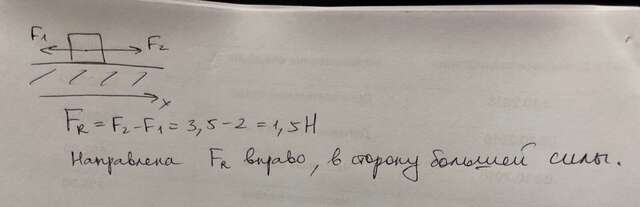 F₁ F₂
x
F_R = F₂ - F₁ = 3,5 - 2 = 1,5 Н
Направлена F_R вправо, в сторону большей силы.